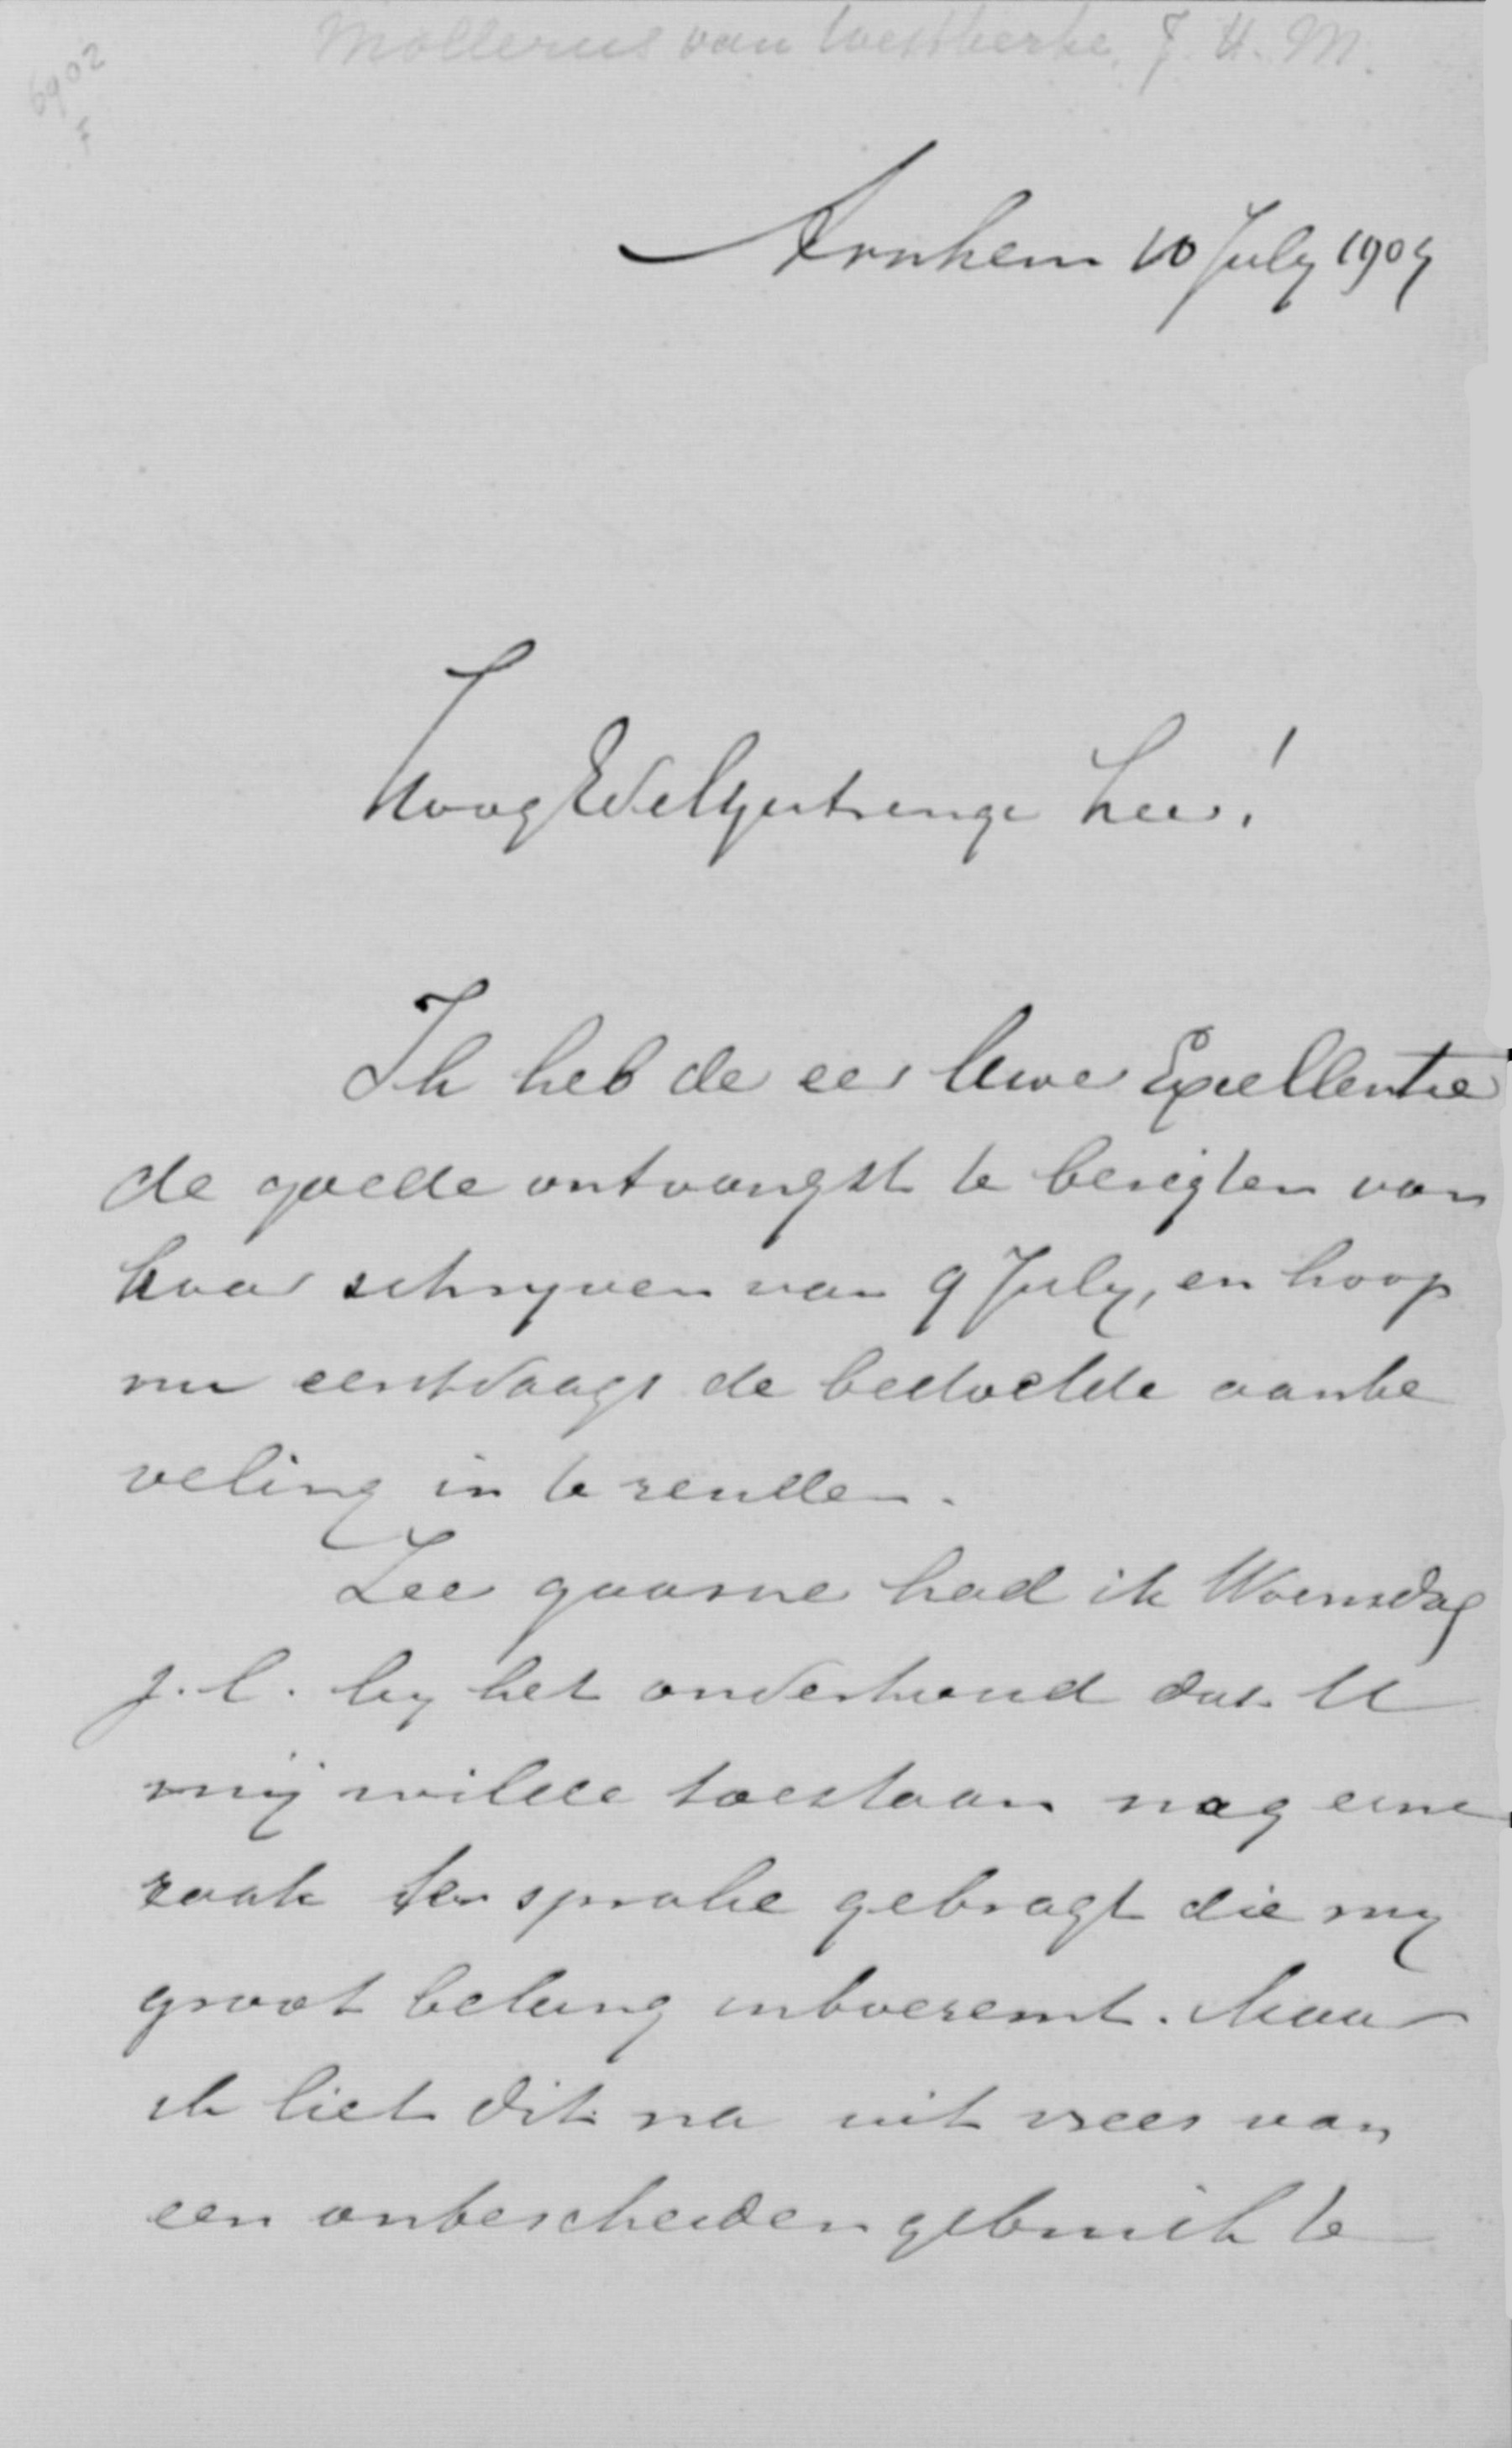 Mollerus van Westkerke, J. H. M.
6902
Arnhem 10 July 1904
HoogEdelgestrenge Heer!
Ik heb de eer Uwe Excellentie
de goede ontvangst te berigten van
haar schryven van 9 July, en hoop
nu eerstdaags de bedoelde aanbe
veling in te zenden.
Zeer gaarne had ik Woensdag
j.l. by het onderhoud dat U
mij wilde toestaan nog eene
zaak ter sprake gebragt die my
groot belang inboezemt. Maar
ik liet dit na uit vrees van
een onbescheiden gebruik te